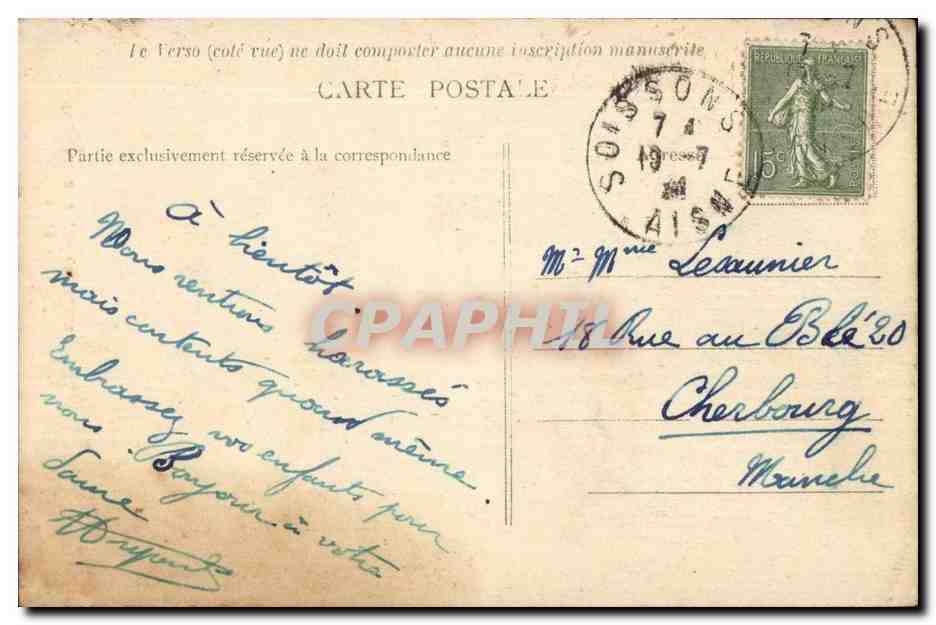 Le Verso (coté vue) ne doit comporter aucune inscription manuscrite
CARTE POSTALE
Partie exclusivement réservée à la correspondance
Adresse
SOISSONS
7
19 - 7
AISNE
REPUBLIQUE FRANÇAISE
15c
POSTES
à bientôt
Nous rentrons harassés
mais contents quand même
Embrassez vos enfants pour
nous Bonjour à votre
dame
Mr Mme Lesaunier
18 Rue au Blé 20
Cherbourg
Manche
CPAPHIL